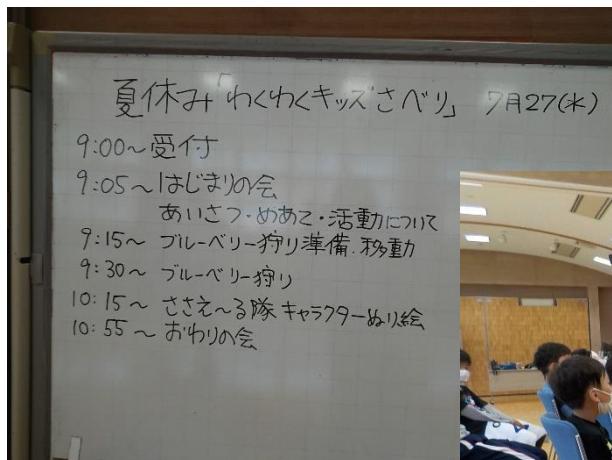 夏休み「わくわくキッズさべり」 7月27(水)
9:00～受付
9:05～はじまりの会
あいさつ・めあて・活動について
9:15～ ブルーベリー狩り準備、移動
9:30～ ブルーベリー狩り
10:15～ ささえ～る隊 キャラクターぬり絵
10:55～ おわりの会